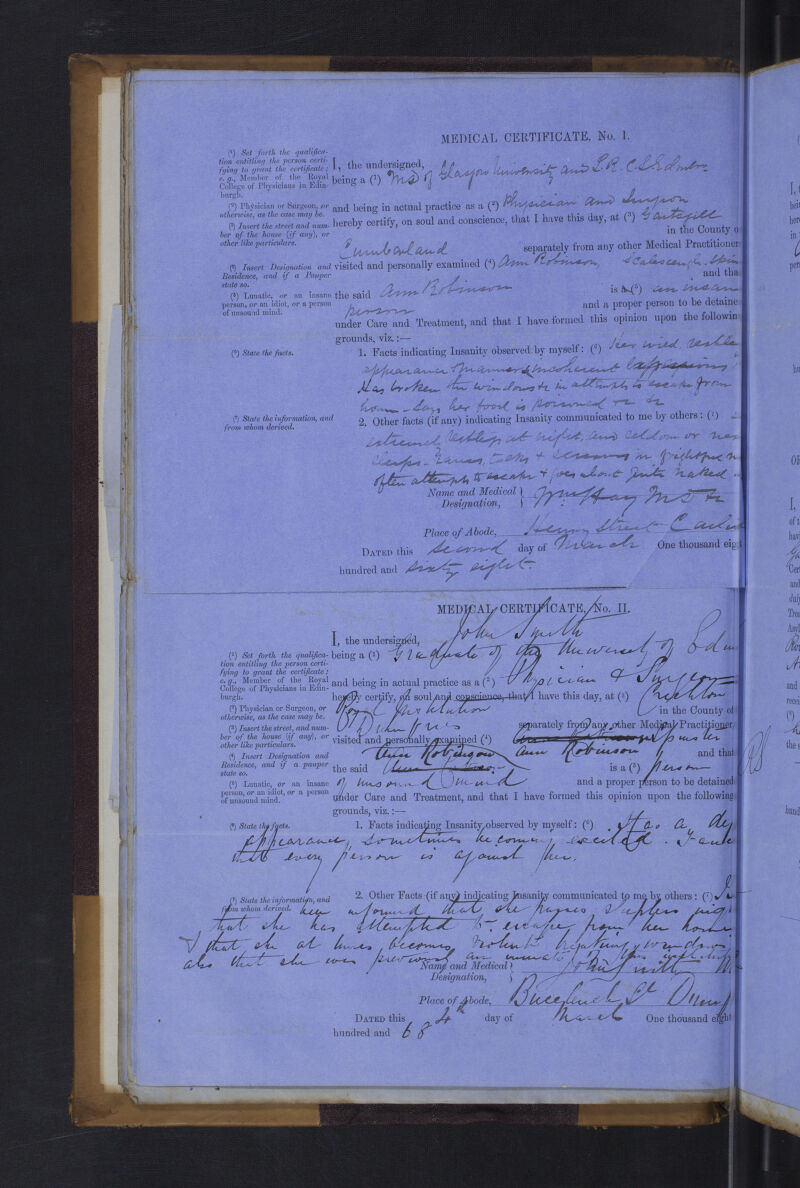 MEDICAL CERTIFICATE, No. I.
(¹) Set forth the qualifica-
tion entitling the person certi-
fying to grant the certificate;
e.g., Member of the Royal
College of Physicians in Edin-
burgh.
(²) Physician or Surgeon, or
otherwise, as the case may be.
(³) Insert the street and num-
ber of the house (if any), or
other like particulars.
(⁴) Insert Designation and
Residence, and if a Pauper
state so.
(⁵) Lunatic, or an insane
person, or an idiot, or a person
of unsound mind.
(⁶) State the facts.
(⁷) State the information, and
from whom derived.
I, the undersigned,
being a (¹) MD of Glasgow University and L.R.C.S. Edinbr
and being in actual practice as a (²) Physician and Surgeon
hereby certify, on soul and conscience, that I have this day, at (³)
in the County o
Cumberland separately from any other Medical Practitioner
visited and personally examined (⁴) Ann Robinson,
and tha
the said Ann Robinson is a (⁵) an insan
person and a proper person to be detaine
under Care and Treatment, and that I have formed this opinion upon the followin
grounds, viz.:—
1. Facts indicating Insanity observed by myself: (⁶) Her wild restle
appearance & incoherent expressions
Has broken the windows &c in attempts to escape from
home - Says her food is poisoned &c &c
2. Other facts (if any) indicating Insanity communicated to me by others: (⁷)
restless at night, and seldom or nev
sleeps - Raves, talks & screams in frightful m
often attempts to escape & goes about quite naked
Name and Medical Designation, Wm Hay MD &c
Place of Abode, Henry Street Carlisl
DATED this second day of March One thousand eigh
hundred and sixty eight.
MEDICAL CERTIFICATE, No. II.
(¹) Set forth the qualifica-
tion entitling the person certi-
fying to grant the certificate;
e.g., Member of the Royal
College of Physicians in Edin-
burgh.
(²) Physician or Surgeon, or
otherwise, as the case may be.
(³) Insert the street and num-
ber of the house (if any), or
other like particulars.
(⁴) Insert Designation and
Residence, and if a pauper
state so.
(⁵) Lunatic, or an insane
person, or an idiot, or a person
of unsound mind.
(⁶) State the facts.
(⁷) State the information, and
from whom derived.
I, the undersigned, John Smith
being a (¹) Graduate of the University of Edin
and being in actual practice as a (²) Physician & Surgeon
hereby certify, on soul and conscience, that I have this day, at (³) Crichton
Royal Institution in the County of
Dumfries separately from any other Medical Practitioner,
visited and personally examined (⁴)
Ann Robinson Ann Robinson and that
the said is a (⁵) person
of unsound mind and a proper person to be detained
under Care and Treatment, and that I have formed this opinion upon the following
grounds, viz.:—
1. Facts indicating Insanity observed by myself: (⁶) Has a
appearance, sometimes becoming excited.
that every person is against her.
2. Other Facts (if any) indicating Insanity communicated to me by others: (⁷)
been informed that she passes sleepless nigh
that she has attempted to escape from her home
& that she at times becomes violent breaking windows
also that she was previously an inmate of this
Name and Medical Designation, John Smith M
Place of Abode, Buccleuch St Dumf
DATED this 4th day of March One thousand eight
hundred and 68